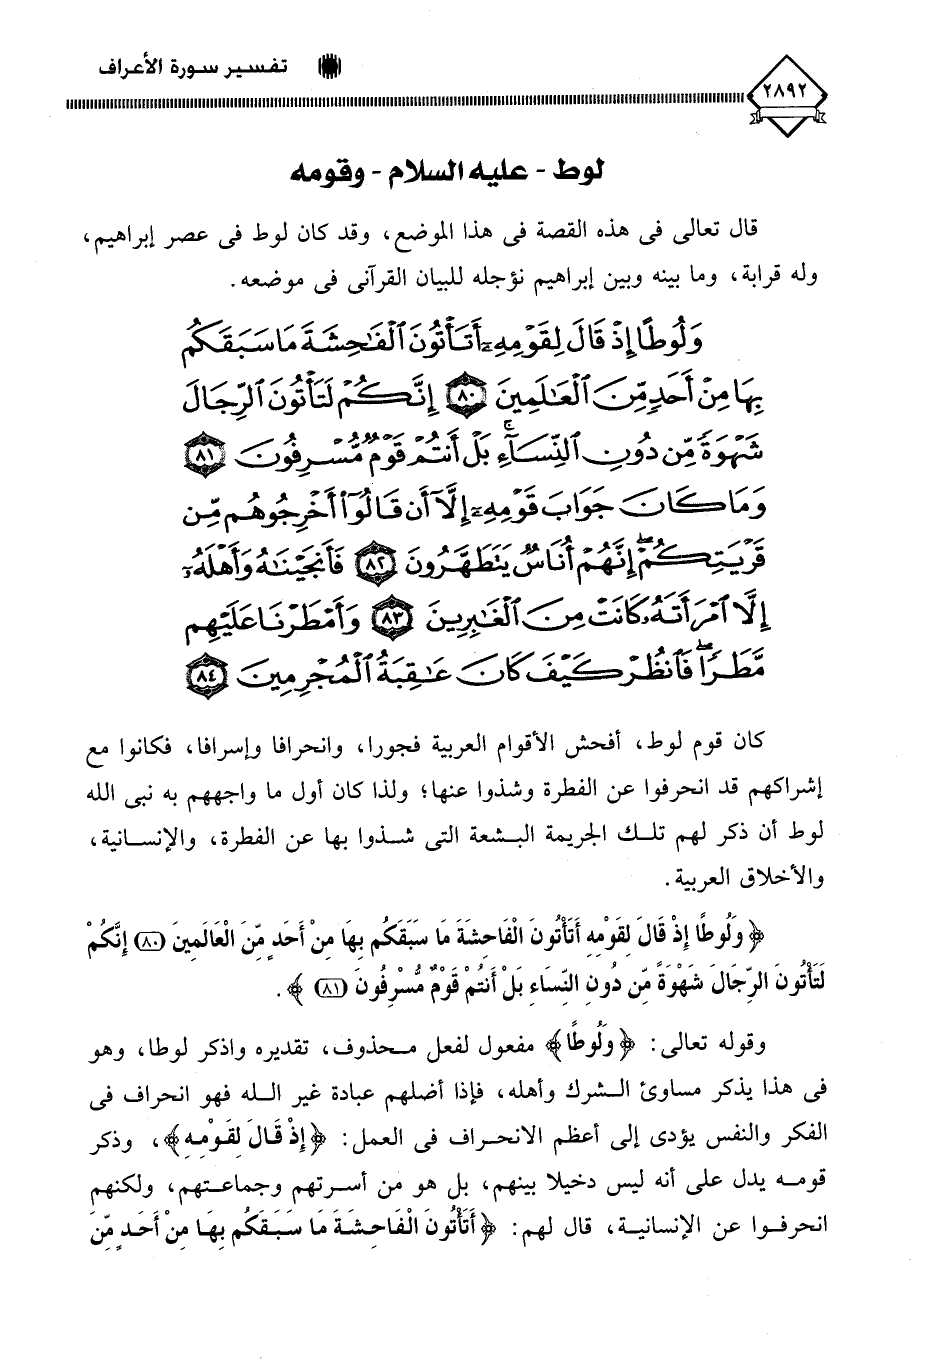 ٢٨٩٢
تفسير سورة الأعراف
لوط - عليه السلام - وقومه
قال تعالى فى هذه القصة فى هذا الموضع، وقد كان لوط فى عصر إبراهيم،
وله قرابة، وما بينه وبين إبراهيم نؤجله للبيان القرآنى فى موضعه.
وَلُوطًا إِذْ قَالَ لِقَوْمِهِۦٓ أَتَأْتُونَ ٱلْفَٰحِشَةَ مَا سَبَقَكُم
بِهَا مِنْ أَحَدٍ مِّنَ ٱلْعَٰلَمِينَ ٨٠ إِنَّكُمْ لَتَأْتُونَ ٱلرِّجَالَ
شَهْوَةً مِّن دُونِ ٱلنِّسَآءِ ۚ بَلْ أَنتُمْ قَوْمٌ مُّسْرِفُونَ ٨١
وَمَا كَانَ جَوَابَ قَوْمِهِۦٓ إِلَّآ أَن قَالُوٓا۟ أَخْرِجُوهُم مِّن
قَرْيَتِكُمْ ۖ إِنَّهُمْ أُنَاسٌ يَتَطَهَّرُونَ ٨٢ فَأَنجَيْنَٰهُ وَأَهْلَهُۥٓ
إِلَّا ٱمْرَأَتَهُۥ كَانَتْ مِنَ ٱلْغَٰبِرِينَ ٨٣ وَأَمْطَرْنَا عَلَيْهِم
مَّطَرًا ۖ فَٱنظُرْ كَيْفَ كَانَ عَٰقِبَةُ ٱلْمُجْرِمِينَ ٨٤
كان قوم لوط، أفحش الأقوام العربية فجورا، وانحرافا وإسرافا، فكانوا مع
إشراكهم قد انحرفوا عن الفطرة وشذوا عنها؛ ولذا كان أول ما واجههم به نبى الله
لوط أن ذكر لهم تلك الجريمة البشعة التى شذوا بها عن الفطرة، والإنسانية،
والأخلاق العربية.
﴿وَلُوطًا إِذْ قَالَ لِقَوْمِهِ أَتَأْتُونَ الْفَاحِشَةَ مَا سَبَقَكُم بِهَا مِنْ أَحَدٍ مِّنَ الْعَالَمِينَ (٨٠) إِنَّكُمْ
لَتَأْتُونَ الرِّجَالَ شَهْوَةً مِّن دُونِ النِّسَاءِ بَلْ أَنتُمْ قَوْمٌ مُّسْرِفُونَ (٨١)﴾.
وقوله تعالى: ﴿وَلُوطًا﴾ مفعول لفعل محذوف، تقديره واذكر لوطا، وهو
فى هذا يذكر مساوئ الشرك وأهله، فإذا أضلهم عبادة غير الله فهو انحراف فى
الفكر والنفس يؤدى إلى أعظم الانحراف فى العمل: ﴿إِذْ قَالَ لِقَوْمِهِ﴾، وذكر
قومه يدل على أنه ليس دخيلا بينهم، بل هو من أسرتهم وجماعتهم، ولكنهم
انحرفوا عن الإنسانية، قال لهم: ﴿أَتَأْتُونَ الْفَاحِشَةَ مَا سَبَقَكُم بِهَا مِنْ أَحَدٍ مِّنَ